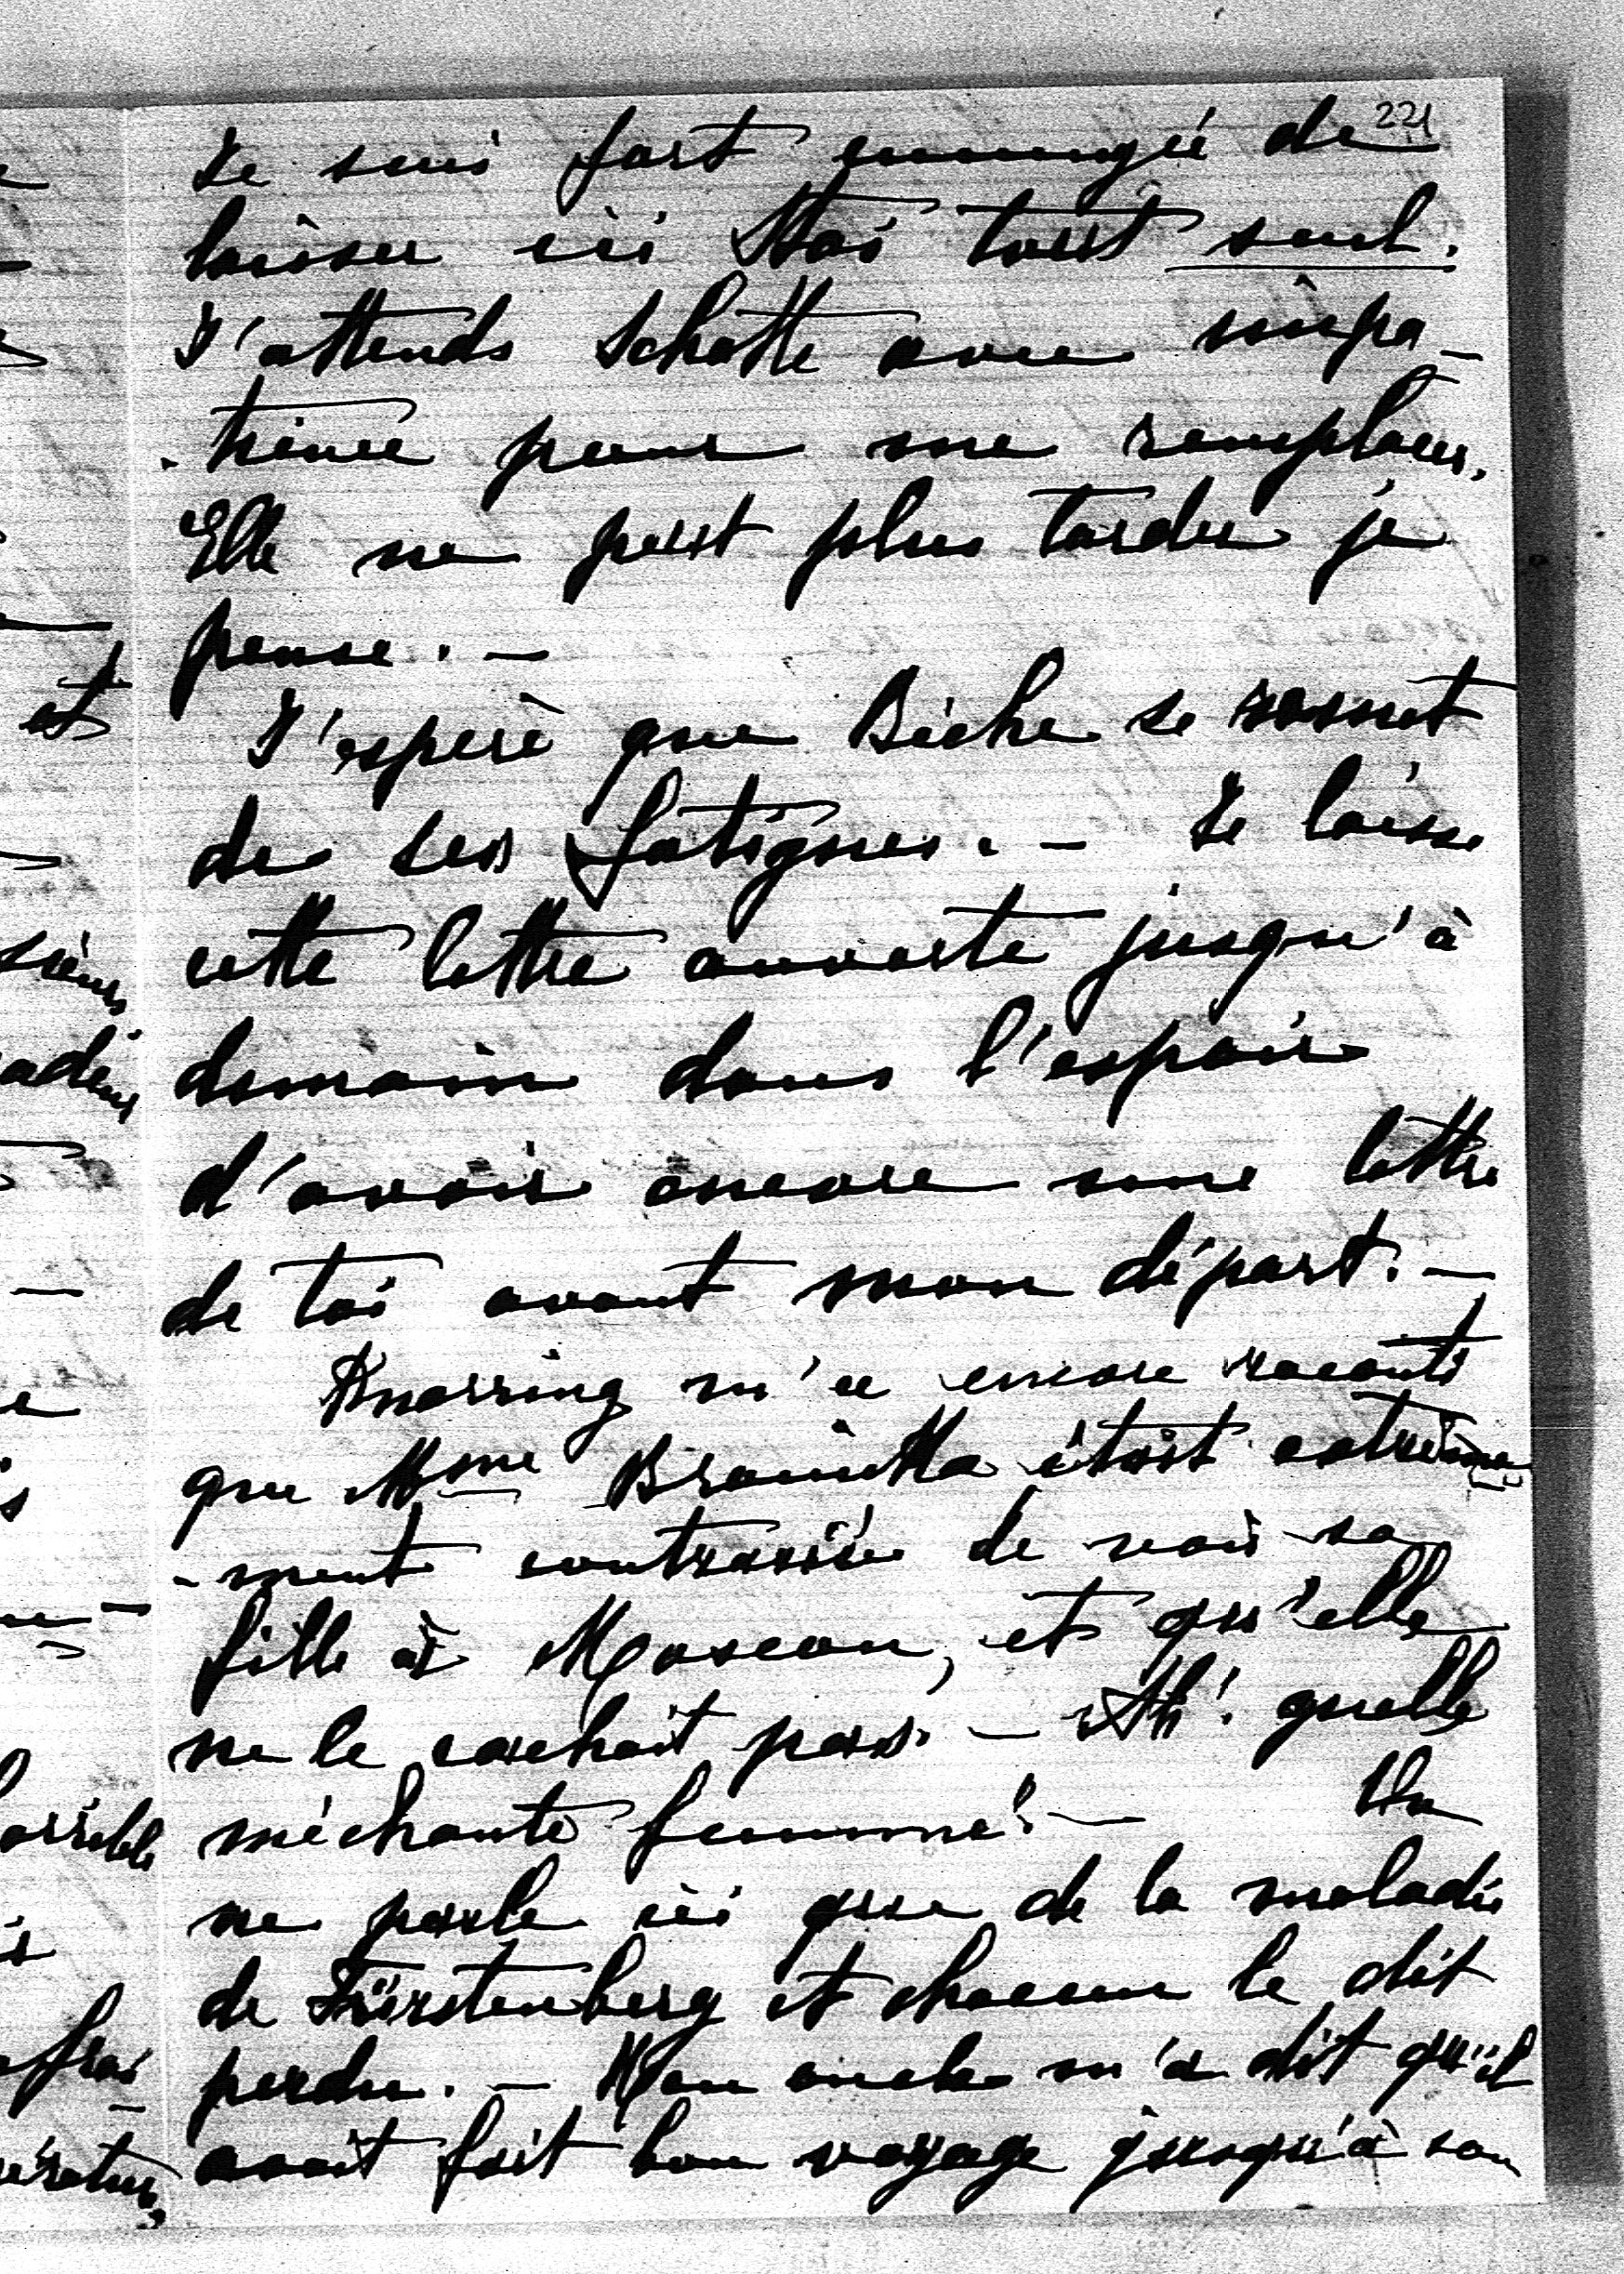 221
Je suis fort ennuyée de
laisser ici Stoi tout seul.
J'attends Schotte avec impa-
-tience pour me remplacer.
Elle ne peut plus tarder je
pense. -
J'espère que Biche se remet
de ses fatigues. - Je laisse
cette lettre ouverte jusqu'à
demain dans l'espoir
d'avoir encore une lettre
de toi avant mon départ. -
Knorring m'a encore raconté
que Mme était extrême
-ment contrariée de voir sa
fille à Moscou, et qu'elle
ne le cachait pas. - Ah! quelle
méchante femme! - On
ne parle ici que de la maladie
de Fürstenberg et chacun le dit
perdu. - Mon oncle m'a dit qu'il
avait fait bon voyage jusqu'à son